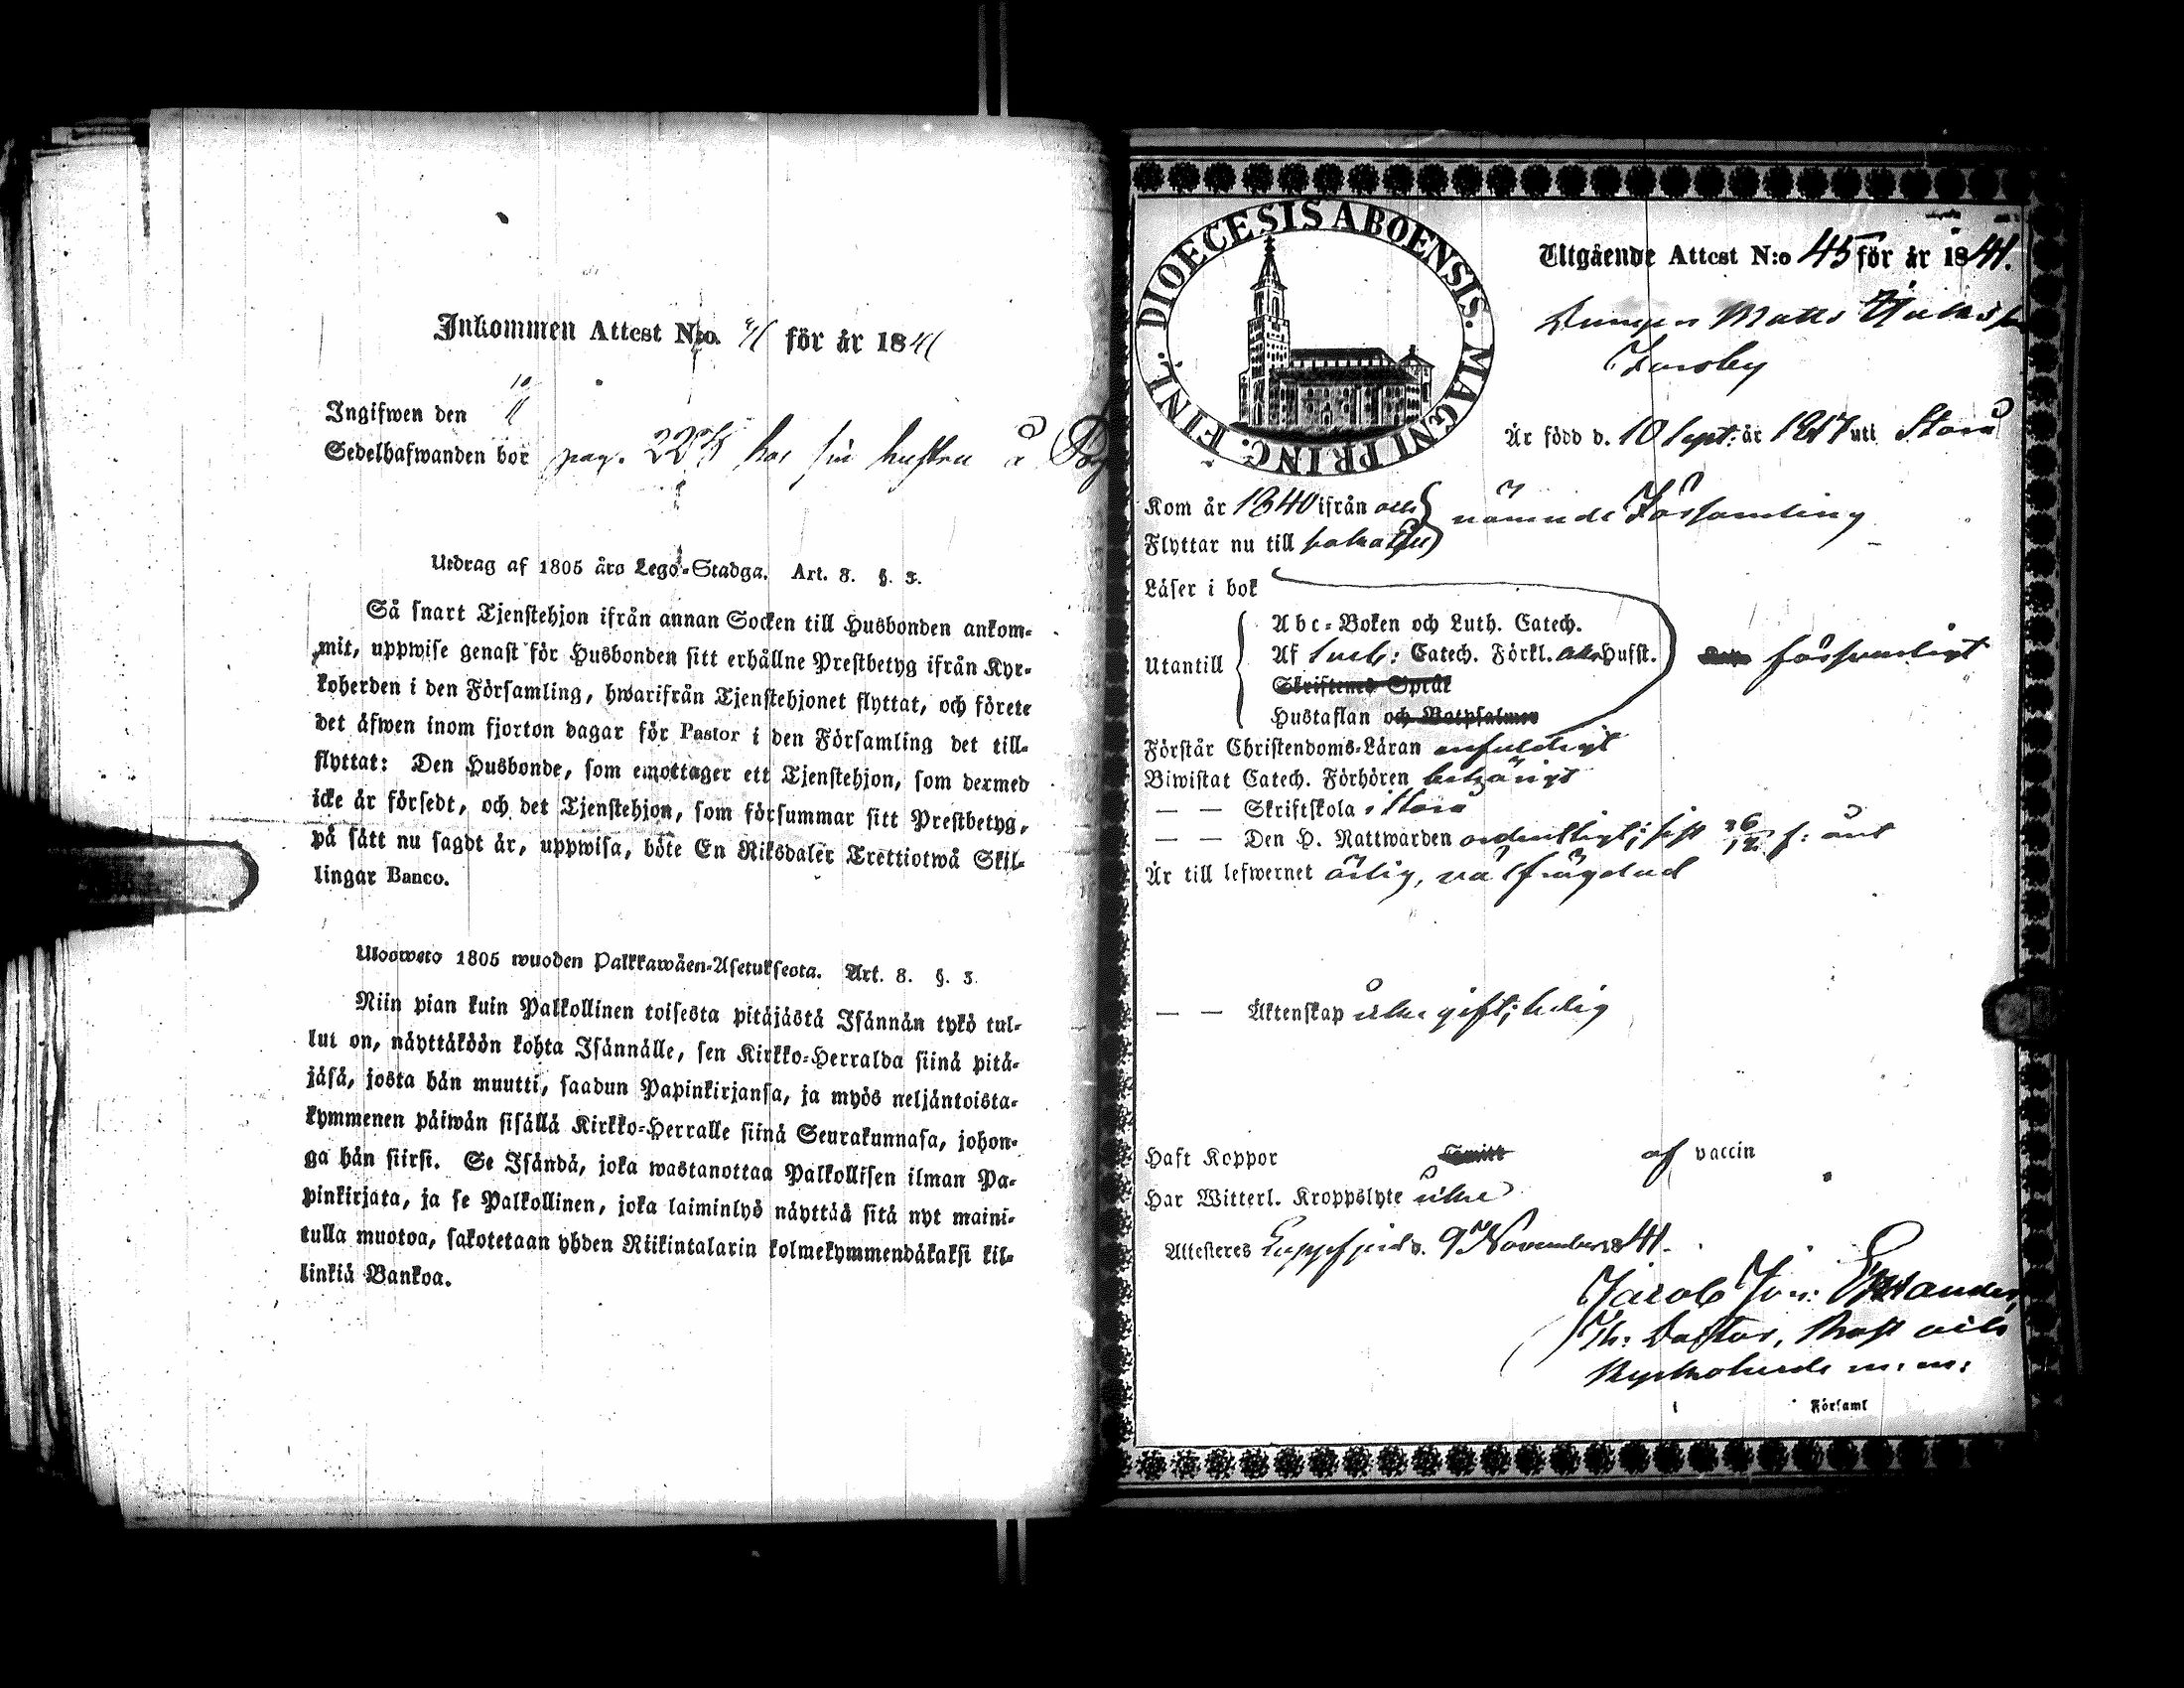 Inkommen Attest N:o. 41 för år 1841
Ingifwen den 10/11
Sedelhafwanden bor pag. 225 hos sin hustru å
Utdrag af 1805 års Lego-Stadga. Art. 8. §. 3.
Så snart Tjenstehjon ifrån annan Socken till Husbonden ankom-
mit, uppwise genast för Husbonden sitt erhållne Prestbetyg ifrån Kyr-
koherden i den Församling, hwarifrån Tjenstehjonet flyttat, och förete
det äfwen inom fjorton dagar för Pastor i den Församling det till-
flyttat: Den Husbonde, som emottager ett Tjenstehjon, som dermed
icke är försedt, och det Tjenstehjon, som försummar sitt Prestbetyg,
på sätt nu sagdt är, uppwisa, böte En Riksdaler Trettiotwå Skil-
lingar Banco.
Ulosweto 1805 wuoden Palkkawäen-Asetuksesta. Art. 8. §. 3.
Niin pian kuin Palkollinen toisesta pitäjästä Isännän tykö tul-
lut on, näyttäköön kohta Isännälle, sen Kirkko-Herralda siinä pitä-
jäsä, josta hän muutti, saadun Papinkirjansa, ja myös neljäntoista-
kymmenen päiwän sisällä Kirkko-Herralle siinä Seurakunnasa, johon-
ga hän siirsi. Se Isändä, joka wastanottaa Palkollisen ilman Pa-
pinkirjata, ja se Palkollinen, joka laiminlyö näyttää sitä nyt maini-
tulla muotoa, sakotetaan yhden Riikintalarin kolmekymmendäkaksi kil-
linkiä Bankoa.
DIOECESIS ABOENSIS. MAGNI PRINC. FINL.
Utgående Attest N:o 45 för år 1841.
Drengen Matts
Forsby
Är född d. 10 Sept: år 1817 uti Storå
Kom år 1840 ifrån och
nämnde Församling
Flyttar nu till
Läser i bok
Abc-Boken och Luth. Catech.
Utantill
Af Sveb: Catech. Förkl. och Husst.
försvarligt
Skriftenes Språk
Hustaflan och Botpsalmer
Förstår Christendoms-Läran enfaldigt
Biwistat Catech. Förhören
— — Skriftskola i Storå
— — Den H. Nattwarden ordentligt; sist 26/12 f: året
Är till lefwernet ärlig, välfrägdad
— — Äktenskap icke gift; ledig
Haft Koppor Smitt af vaccin
Har Witterl. Kroppslyte icke
Attesteres d. 9 November 1841.
Jacob Jon:
Th: Doctor, Prost och
Kyrkoherde m. m:
i Församl